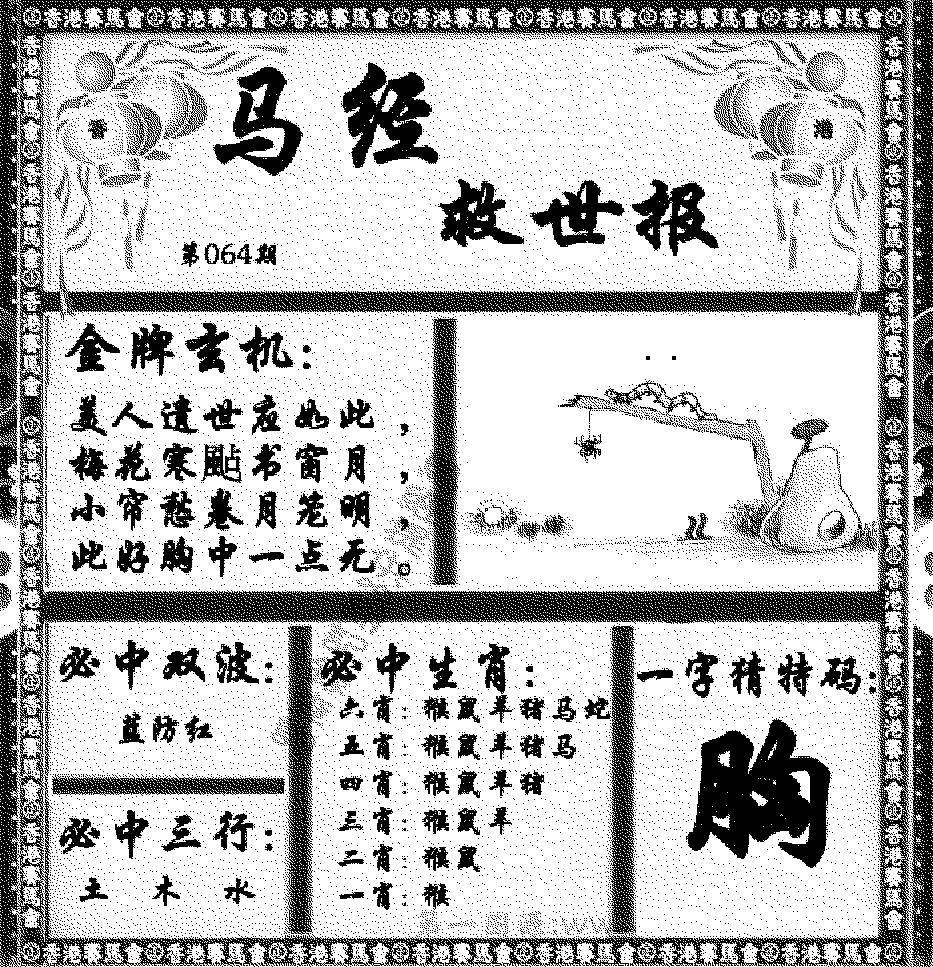 香港賽馬會 香港賽馬會 香港賽馬會 香港賽馬會 香港賽馬會 香港賽馬會 香港賽馬會
香
港
马经
救世报
第064期
金牌玄机:
美人遗世应如此,
梅花寒颭书窗月,
小帘愁卷月笼明,
此好胸中一点无。
必中双波:
蓝防红
必中三行:
土 木 水
必中生肖:
六肖: 猴鼠羊猪马蛇
五肖: 猴鼠羊猪马
四肖: 猴鼠羊猪
三肖: 猴鼠羊
二肖: 猴鼠
一肖: 猴
一字猜特码:
胸
香港賽馬會 香港賽馬會 香港賽馬會 香港賽馬會 香港賽馬會 香港賽馬會 香港賽馬會